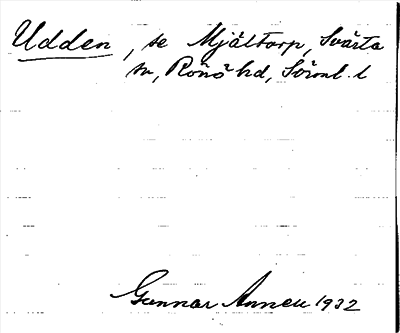 Udden, se Mjältorp, Svärta
sn, Rönö hd, Söml. l
Gunnar Annell 1932